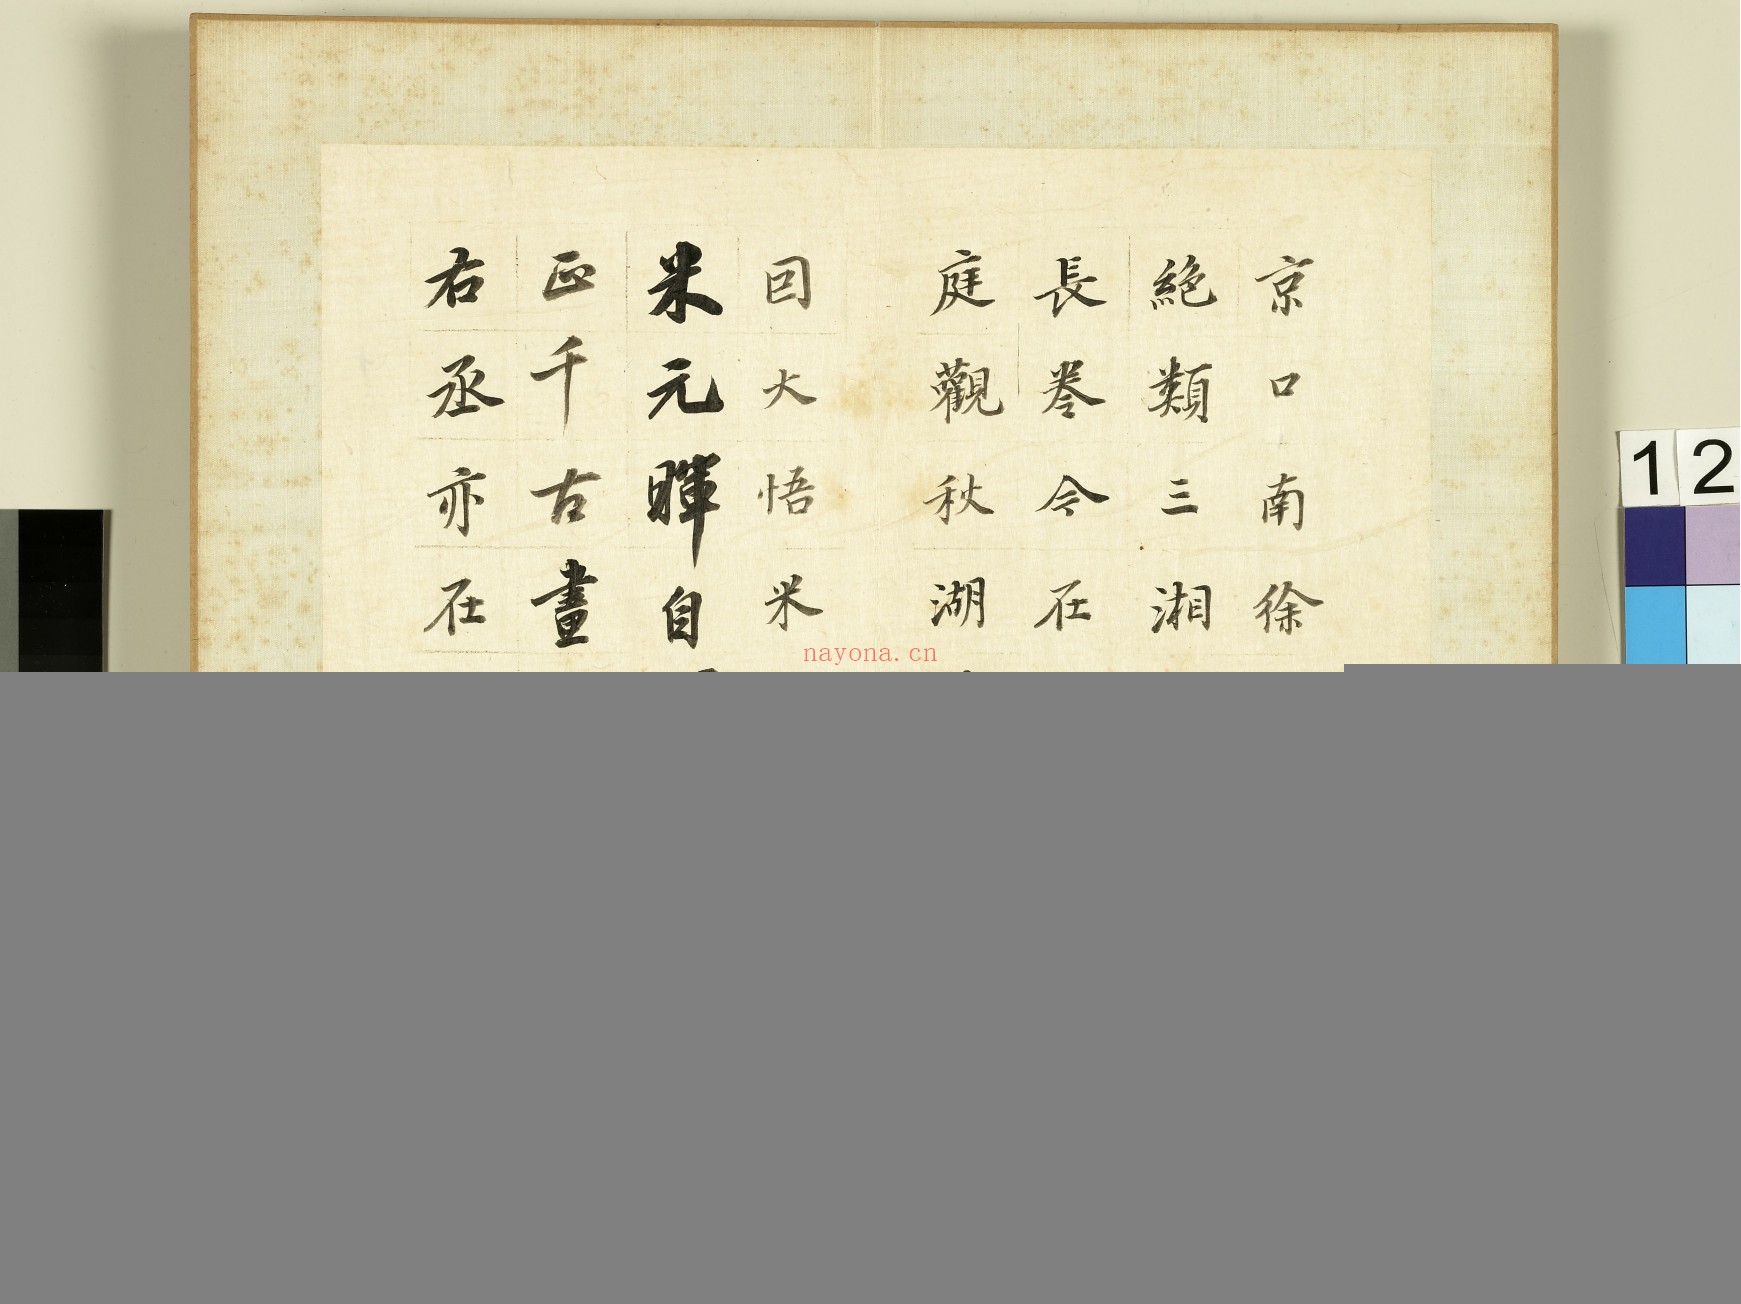 京口南徐
絕類三湘
長卷今在
庭觀秋湖
囙大悟米
米元暉自
正千古畫
右丞亦在
nayona.cn
12